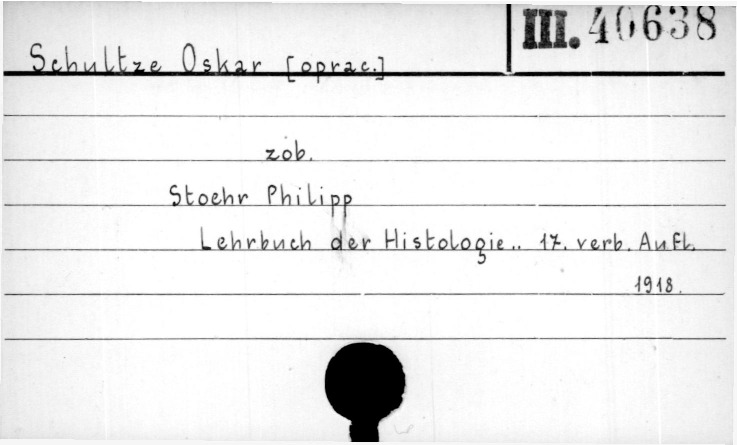 III. 40638
Schultze Oskar [oprac.]
zob.
Stoehr Philipp
Lehrbuch der Histologie.. 17. verb. Aufl.
1918.